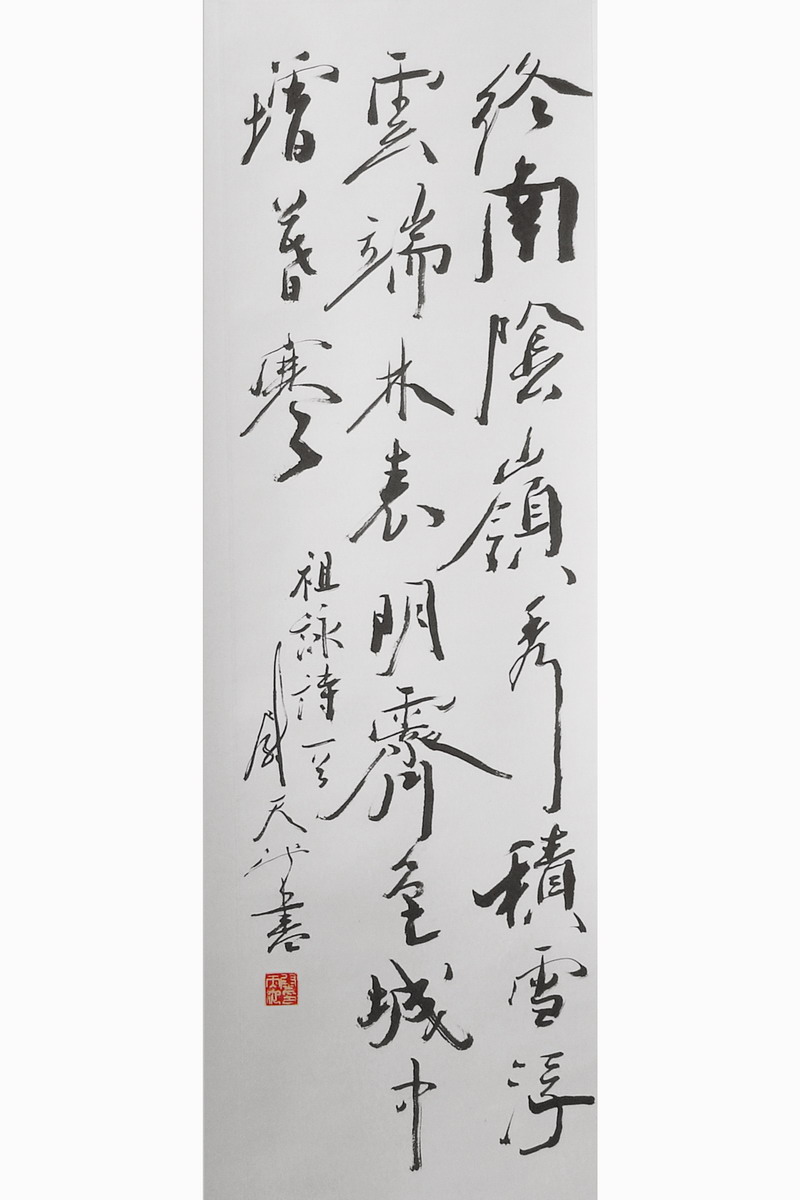 終南陰嶺秀積雪浮
雲端林表明霽色城中
增暮寒
祖詠詩一首
尉天池書